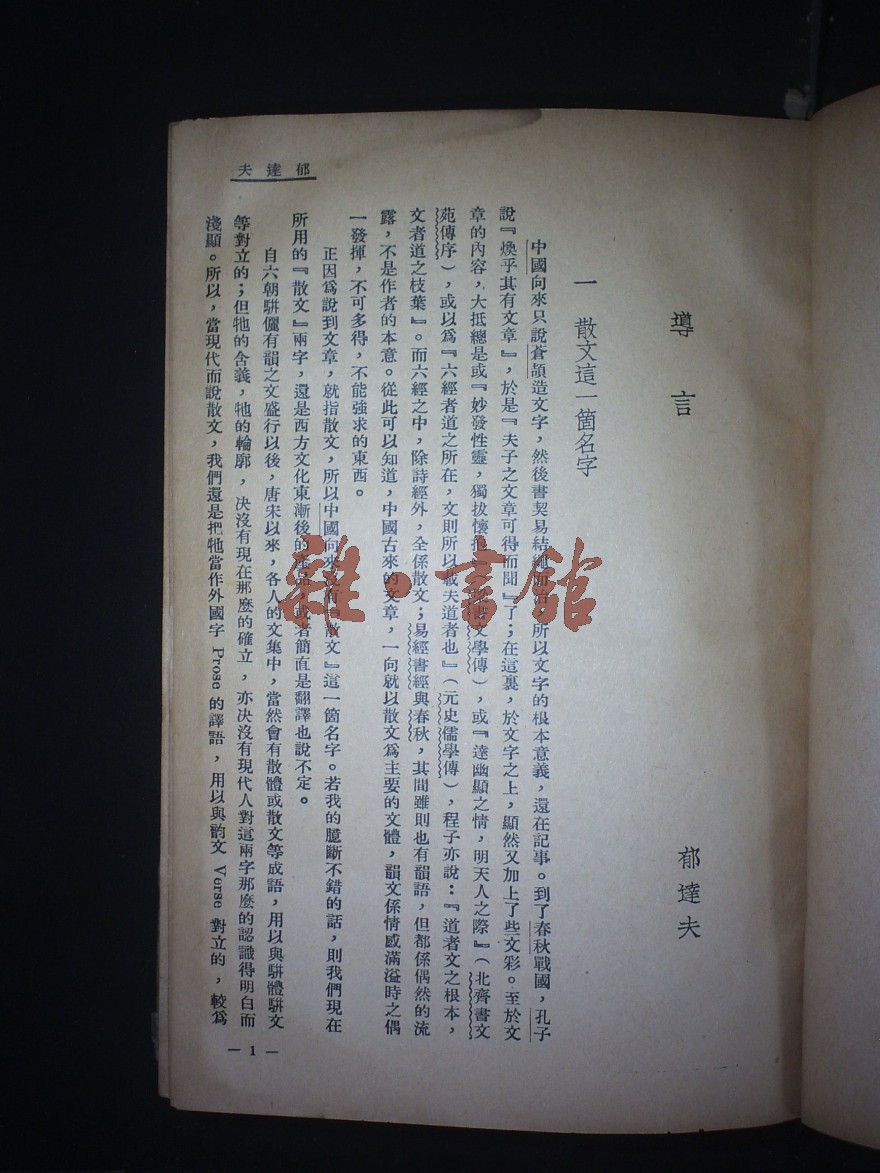 導言
郁達夫
一 散文這一箇名字
中國向來只說蒼頡造文字，然後書契易結繩而治，所以文字的根本意義，還在記事。到了春秋戰國，孔子
說『煥乎其有文章』，於是『夫子之文章可得而聞』了；在這裏，於文字之上，顯然又加上了些文彩。至於文
章的內容，大抵總是或『妙發性靈，獨拔懷抱』（書文學傳），或『達幽顯之情，明天人之際』（北齊書文
苑傳序），或以為『六經者道之所在，文則所以載夫道者也』（元史儒學傳），程子亦說：『道者文之根本，
文者道之枝葉』。而六經之中，除詩經外，全係散文；易經書經與春秋，其間雖則也有韻語，但都係偶然的流
露，不是作者的本意。從此可以知道，中國古來的文章，一向就以散文為主要的文體，韻文係情感滿溢時之偶
一發揮，不可多得，不能強求的東西。
正因為說到文章，就指散文，所以中國向來沒有『散文』這一箇名字。若我的臆斷不錯的話，則我們現在
所用的『散文』兩字，還是西方文化東漸後的產品，或者簡直是翻譯也說不定。
自六朝駢儷有韻之文盛行以後，唐宋以來，各人的文集中，當然會有散體或散文等成語，用以與駢體駢文
等對立的；但牠的含義，牠的輪廓，決沒有現在那麼的確立，亦決沒有現代人對這兩字那麼的認識得明白而
淺顯。所以，當現代而說散文，我們還是把牠當作外國字 Prose 的譯語，用以與韵文 Verse 對立的，較為
郁達夫
— 1 —
雜·書館